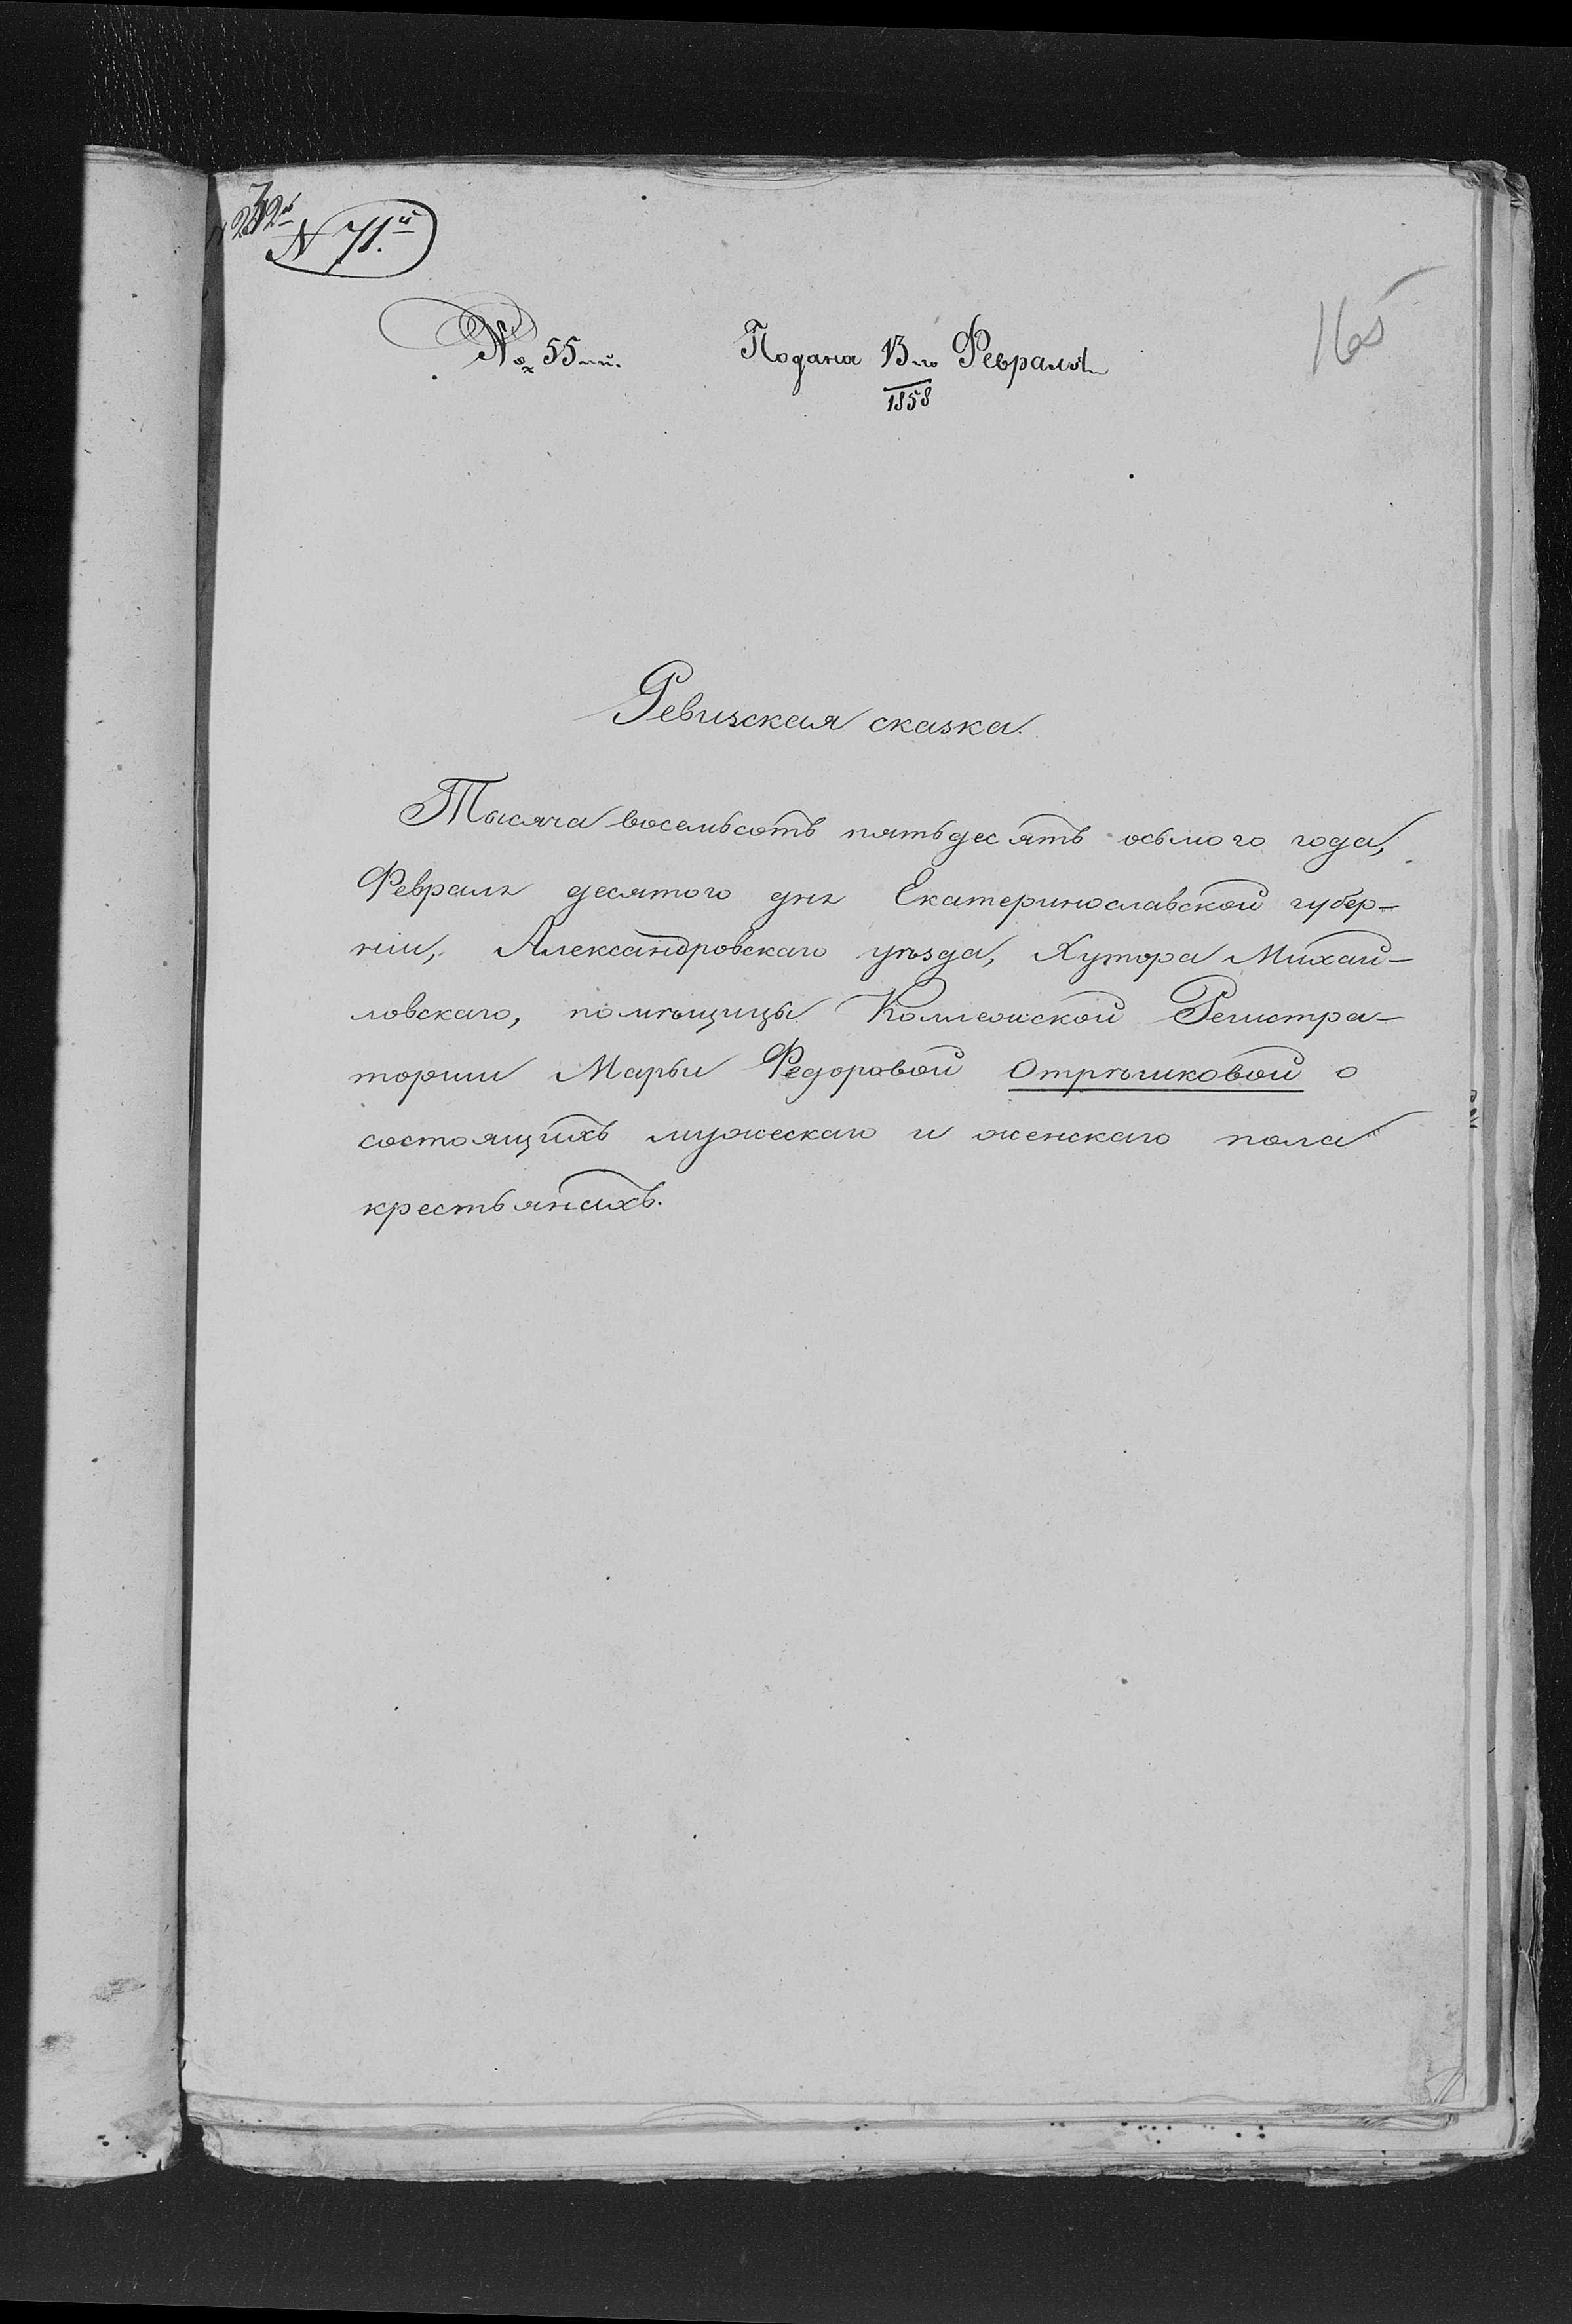 N 71.й
№ 55-й. Подана 13-го Февраля
1858
165
Ревизская сказка.
Тысяча восемьсотъ пятьдесятъ осьмого года,
Февраля десятого дня Екатеринославской губер-
ніи, Александровскаго уѣзда, Хутора Михай-
ловскаго, помѣщицы Коллежской Регистра-
торши Марьи Федоровой Отрѣшковой о
состоящихъ мужескаго и женскаго пола
крестьянахъ.